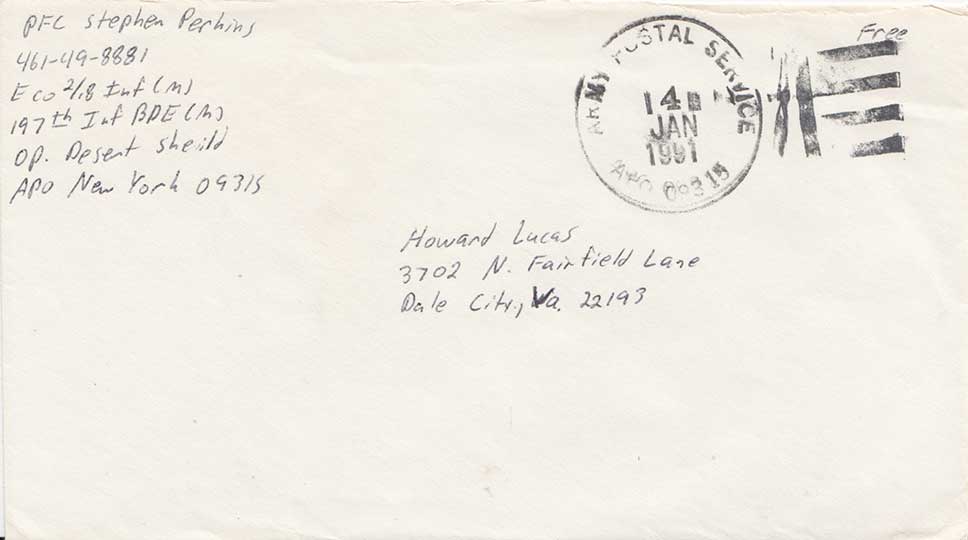 PFC Stephen Perkins
461-49-8881
E co 2/18 Inf (M)
197th Inf BDE (M)
Op. Desert sheild
APO New York 09315
ARMY POSTAL SERVICE
14
JAN
1991
APO 09315
Free
Howard Lucas
3702 N. Fairfield Lane
Dale City, Va. 22193